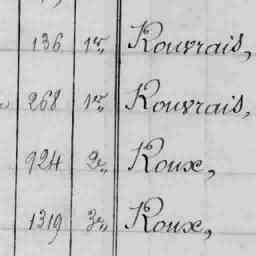 136 1re Rouvrais,
268 1re Rouvrais,
924 2e Roux,
1319 3e Roux,